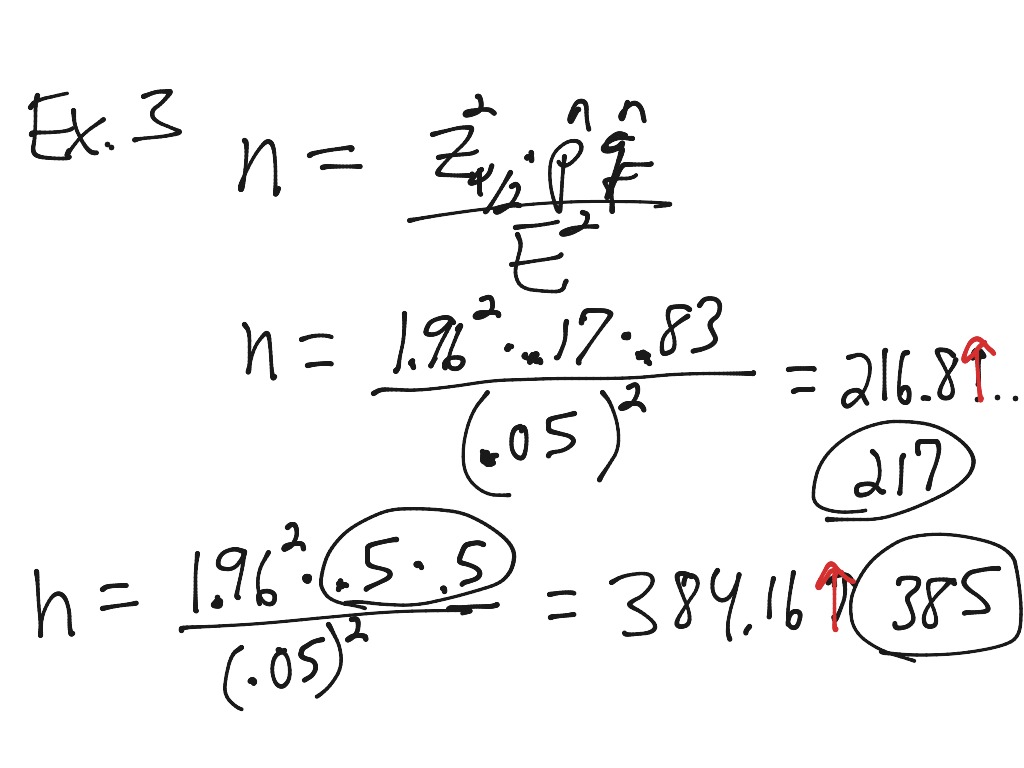 Ex. 3
n = z²α/2 · p̂ q̂ / E²
n = 1.96² · .17 · .83 / (.05)² = 216.81...
217
n = 1.96² · .5 · .5 / (.05)² = 384.16 385